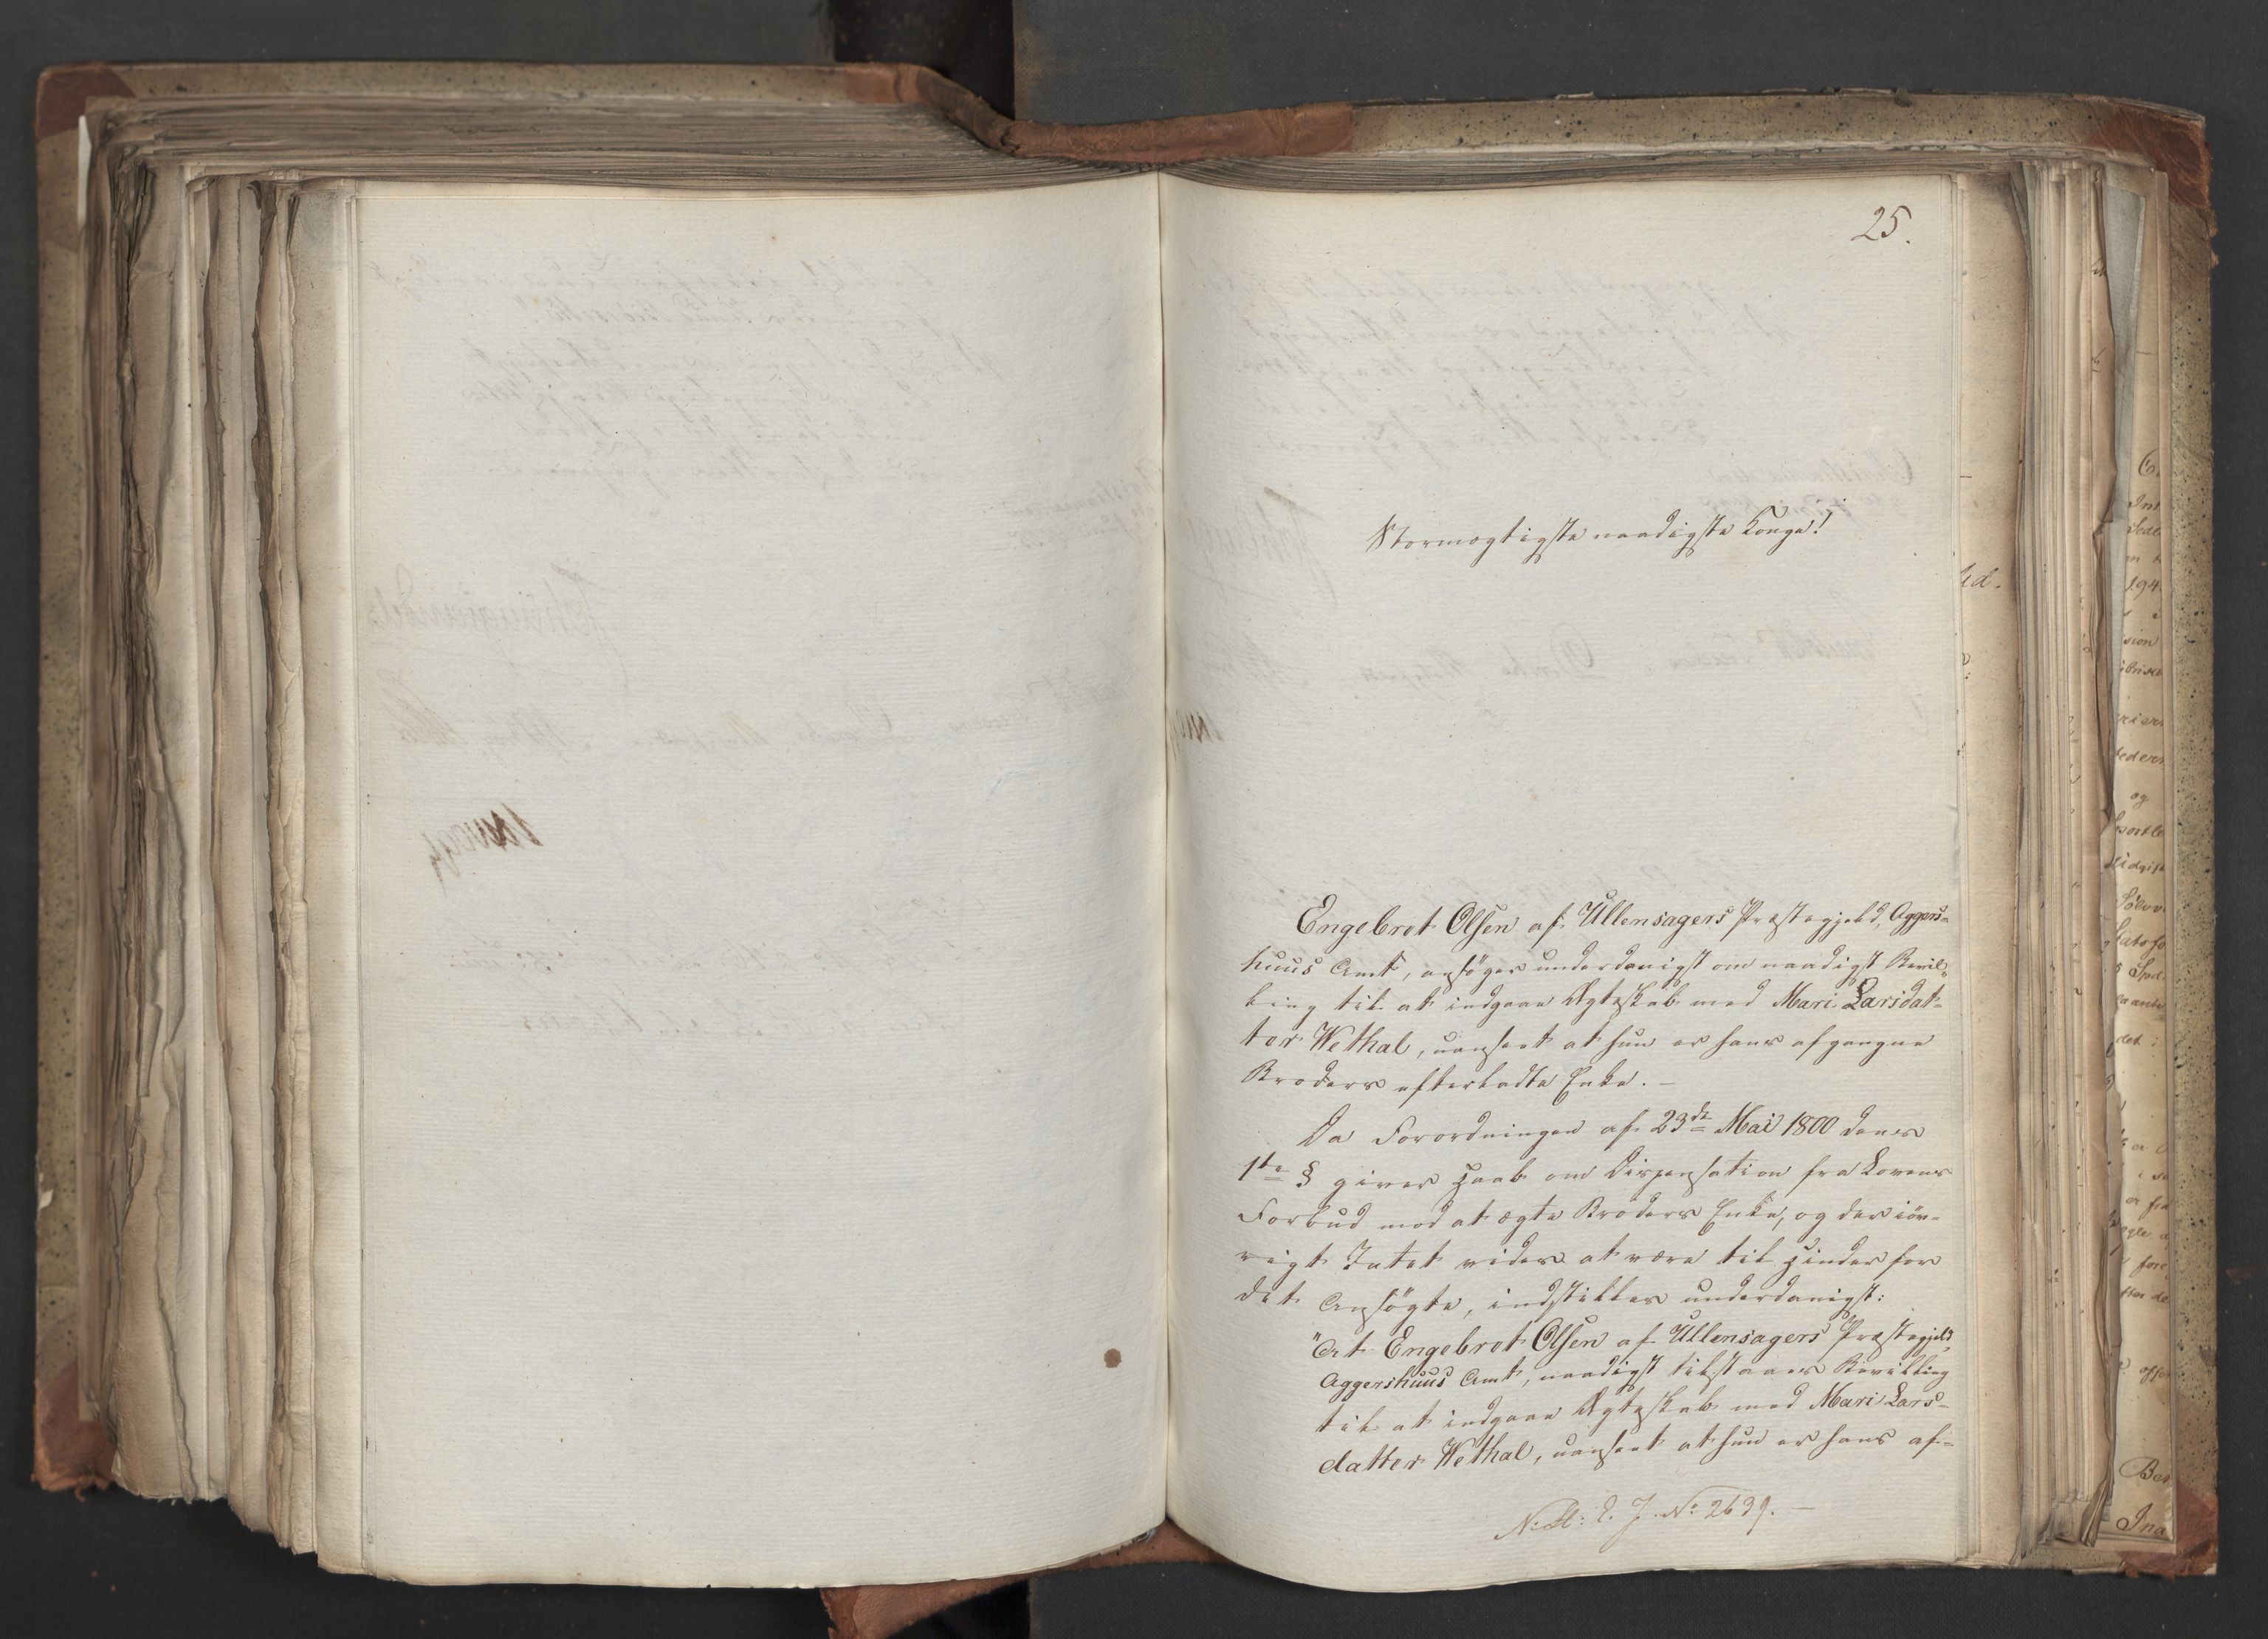 25.
Stormægtigste naadigste Konge!
Engebret Olsen af Ullensagers Præstegjeld, Aggers=
huus Amt, ansøger underdanigst om naadigst Bevil=
ling til at indgaae Ægteskab med Mari Larsdat=
ter Wethal, uanseet at hun er hans afgangne
Broders efterladte Enke. —
Da Forordningen af 23de Mai 1800 dens
1te § giver Haab om Dispensation fra Lovens
Forbud mod at ægte Broders Enke, og der iøv=
rigt Intet vides at være til Hinder for
det Ansøgte, indstilles underdanigst:
"At Engebret Olsen af Ullensagers Præstegjeld,
Aggershuus Amt, naadigst tilstaaes Bevilling
til at indgaae Ægteskab med Mari Lars=
datter Wethal, uanseet at hun er hans af=
J. No 2639. —